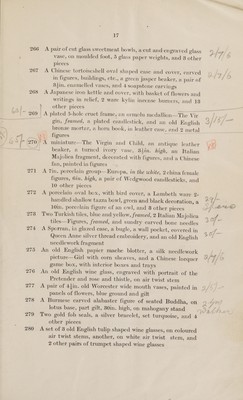 17
266 A pair of cut glass sweetmeat bowls, a cut and engraved glass
vase, on moulded foot, 5 glass paper weights, and 3 other
pieces
267 A Chinese tortoiseshell oval shaped case and cover, carved
in figures, buildings, etc., a green jasper beaker, a pair of
8½in. enamelled vases, and 4 soapstone carvings
268 A Japanese iron kettle and cover, with basket of flowers and
writings in relief, 2 ware kylin incense burners, and 13
other pieces
269 A plated 2-hole cruet frame, ex cruets medallion—The Vir
gin, framed, a plated candlestick, and an old English
bronze mortar, a horn book, in leather case, and 2 metal
figures
270 A miniature—The Virgin and Child, on antique leather
beaker, a turned ivory vase, 8½in. high, an Italian
Majolica fragment, decorated with figures, and a Chinese
fan, painted in figures
271 A 7in. porcelain group—Europa, in the white, 2 china female
figures, 8in. high, a pair of Wedgwood candlesticks, and
10 other pieces
272 A porcelain oval box, with bird cover, a Lambeth ware 2-
handled shallow tazza bowl, green and black decoration, a
10in. porcelain figure of an owl, and 3 other pieces
273 Two Turkish tiles, blue and yellow, framed, 2 Italian Majolica
tiles—Figures, framed, and sundry carved bone needles
274 A Sporran, in glazed case, a bugle, a wall pocket, covered in
Queen Anne silver thread embroidery, and an old English
needlework fragment
275 An old English papier mache blotter, a silk needlework
picture—Girl with corn sheaves, and a Chinese lacquer
game box, with interior boxes and trays
276 An old English wine glass, engraved with portrait of the
Pretender and rose and thistle, on air twist stem
277 A pair of 4¾in. old Worcester wide mouth vases, painted in
panels of flowers, blue ground and gilt
278 A Burmese carved alabaster figure of seated Buddha, on
lotus base, part gilt, 30in. high, on mahogany stand
279 Two gold fob seals, a silver bracelet, set turquoise, and 4
other pieces
280 A set of 3 old English tulip shaped wine glasses, on coloured
air twist stems, another, on white air twist stem, and
2 other pairs of trumpet shaped wine glasses